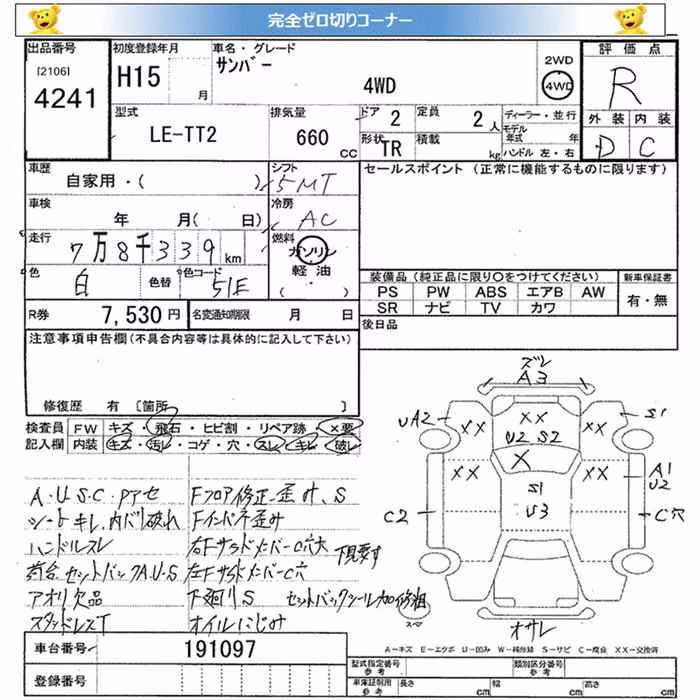 完全ゼロ切りコーナー
出品番号
[2106]
4241
初度登録年月
H15
月
車名・グレード
サンバー
4WD
2WD
4WD
評価点
R
外装 内装
D C
型式
LE-TT2
排気量
660
CC
ドア 2
形状 TR
定員
2
人
積載
kg
ディーラー・並行
モデル年式 年
ハンドル 左・右
車歴
自家用・( )
シフト
5MT
セールスポイント (正常に機能するものに限ります)
車検
年 月( 日)
冷房
AC
走行
7万8千339km
燃料
ガソリン
軽油
( )
色
白
色替
色コード
51E
装備品 (純正品に限り○をつけてください)
新車保証書
PS PW ABS エアB AW
有・無
SR ナビ TV カワ
R券
7,530円
名変通知期限
月 日
後日品
注意事項申告欄(不具合内容等は具体的に記入して下さい)
修復歴 有 [箇所 ]
検査員
記入欄
FW キズ・飛石・ヒビ割・リペア跡・×要
内装 キズ・汚レ・コゲ・穴・スレ・キレ・破レ
A・U・S・C・Pアセ
シートキレ、内バリ破れ
ハンドルスレ
荷台セットバックA・U・S
アオリ欠品
スタッドレスT
Fフロア修正・歪み、S
Fインパネ歪み
右Fサイドメンバー C穴大 下見要す
左Fサイドメンバー C穴
下廻りS セットバックシール加修粗
オイルにじみ
ズレ
A3
UA2
XX
XX
XX
S1
U2 S2
X
XX
XX
A1
U2
S1
U3
C2
C穴
スペア
オサレ
A－キズ E－エクボ U－凹み W－補修跡 S－サビ C－腐食 XX－交換済
車台番号
191097
登録番号
型式指定番号
参考
類別区分番号
参考
車庫証明用
参考
長さ
cm
幅
cm
高さ
cm